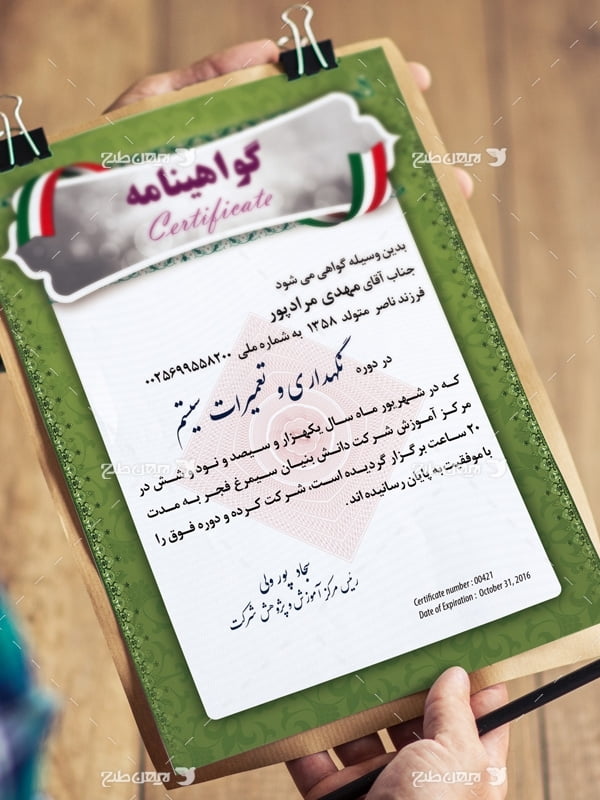 گواهینامه
Certificate
بدین وسیله گواهی می شود
جناب آقای مهدی مرادپور
فرزند ناصر متولد ۱۳۵۸ به شماره ملی ۰۰۲۵۶۹۹۵۵۸۲۰۰
در دوره نگهداری و تعمیرات سیستم
که در شهریور ماه سال یکهزار و سیصد و نود و شش در
مرکز آموزش شرکت دانش بنیان سیمرغ فجر به مدت
۲۰ ساعت برگزار گردیده است، شرکت کرده و دوره فوق را
با موفقیت به پایان رسانیده اند.
سجاد پور ولی
رئیس مرکز آموزش و پژوهش شرکت
Certificate number : 00421
Date of Expiration : October 31, 2016
میهن طرح
میهن طرح
میهن طرح
میهن طرح
میهن طرح
میهن طرح